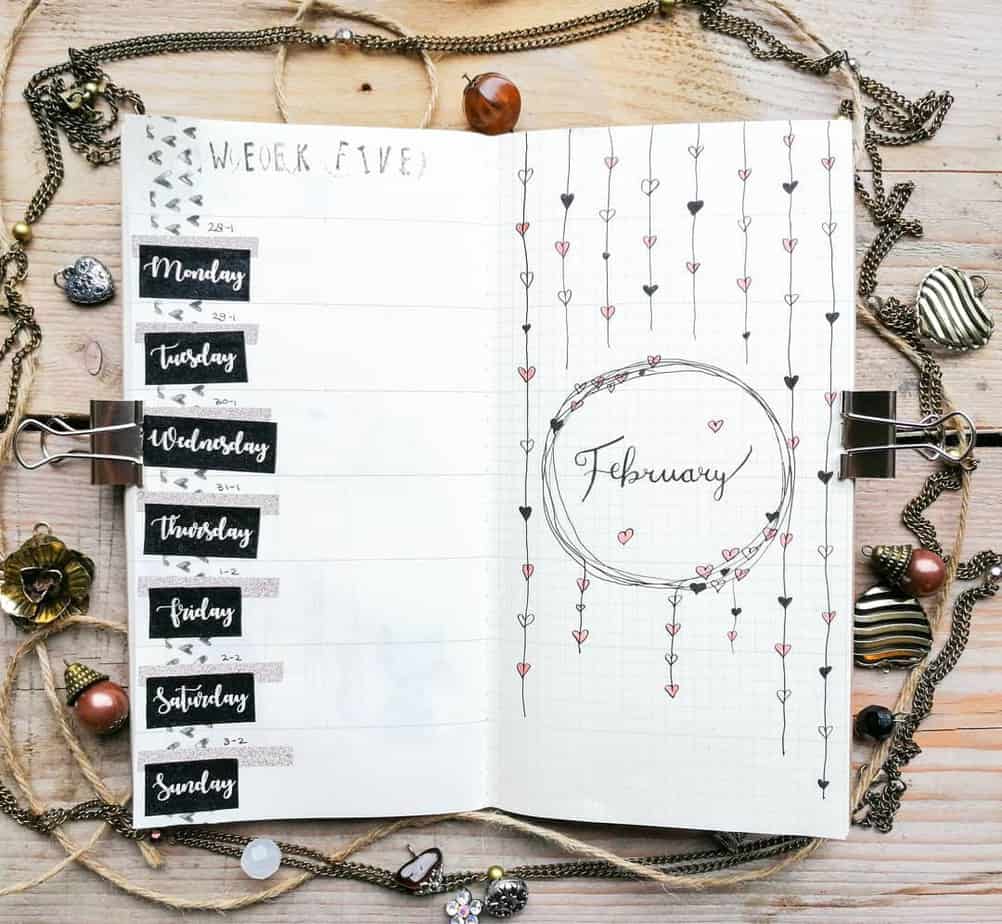 WEEK (FIVE)
28-1
Monday
29-1
Tuesday
30-1
Wednesday
31-1
Thursday
1-2
Friday
2-2
Saturday
3-2
Sunday
February